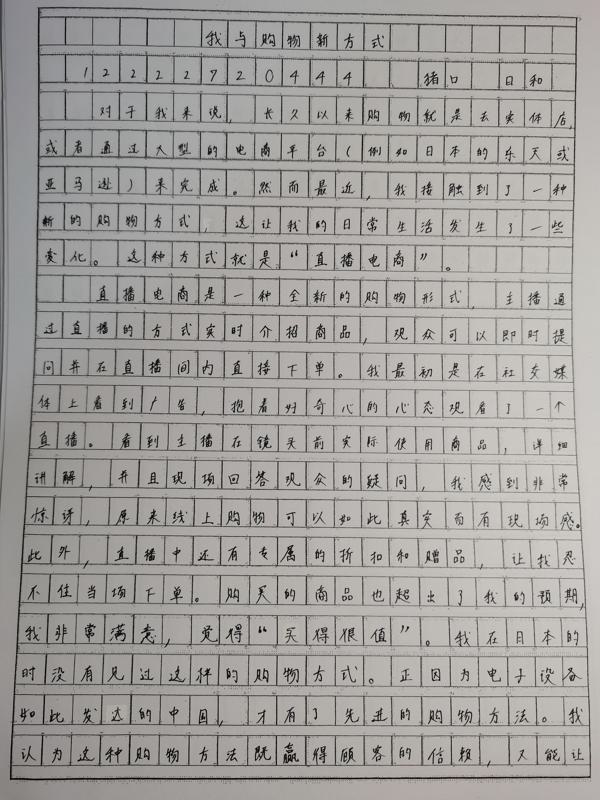 我与购物新方式
12222720444 猪口 日和
对于我来说，长久以来购物就是去实体店，
或者通过大型的电商平台（例如日本的乐天或
亚马逊）来完成。然而最近，我接触到了一种
新的购物方式，这让我的日常生活发生了一些
变化。这种方式就是“直播电商”。
直播电商是一种全新的购物形式，主播通
过直播的方式实时介招商品，观众可以即时提
问并在直播间内直接下单。我最初是在社交媒
体上看到广告，抱着好奇心的心态观看了一个
直播。看到主播在镜头前实际使用商品，详细
讲解，并且现场回答观众的疑问，我感到非常
惊讶，原来线上购物可以如此真实而有现场感。
此外，直播中还有专属的折扣和赠品，让我忍
不住当场下单。购买的商品也超出了我的预期，
我非常满意，觉得“买得很值”。我在日本的
时没有见过这样的购物方式。正因为电子设备
如此发达的中国，才有了先进的购物方法。我
认为这种购物方法既赢得顾客的信赖，又能让